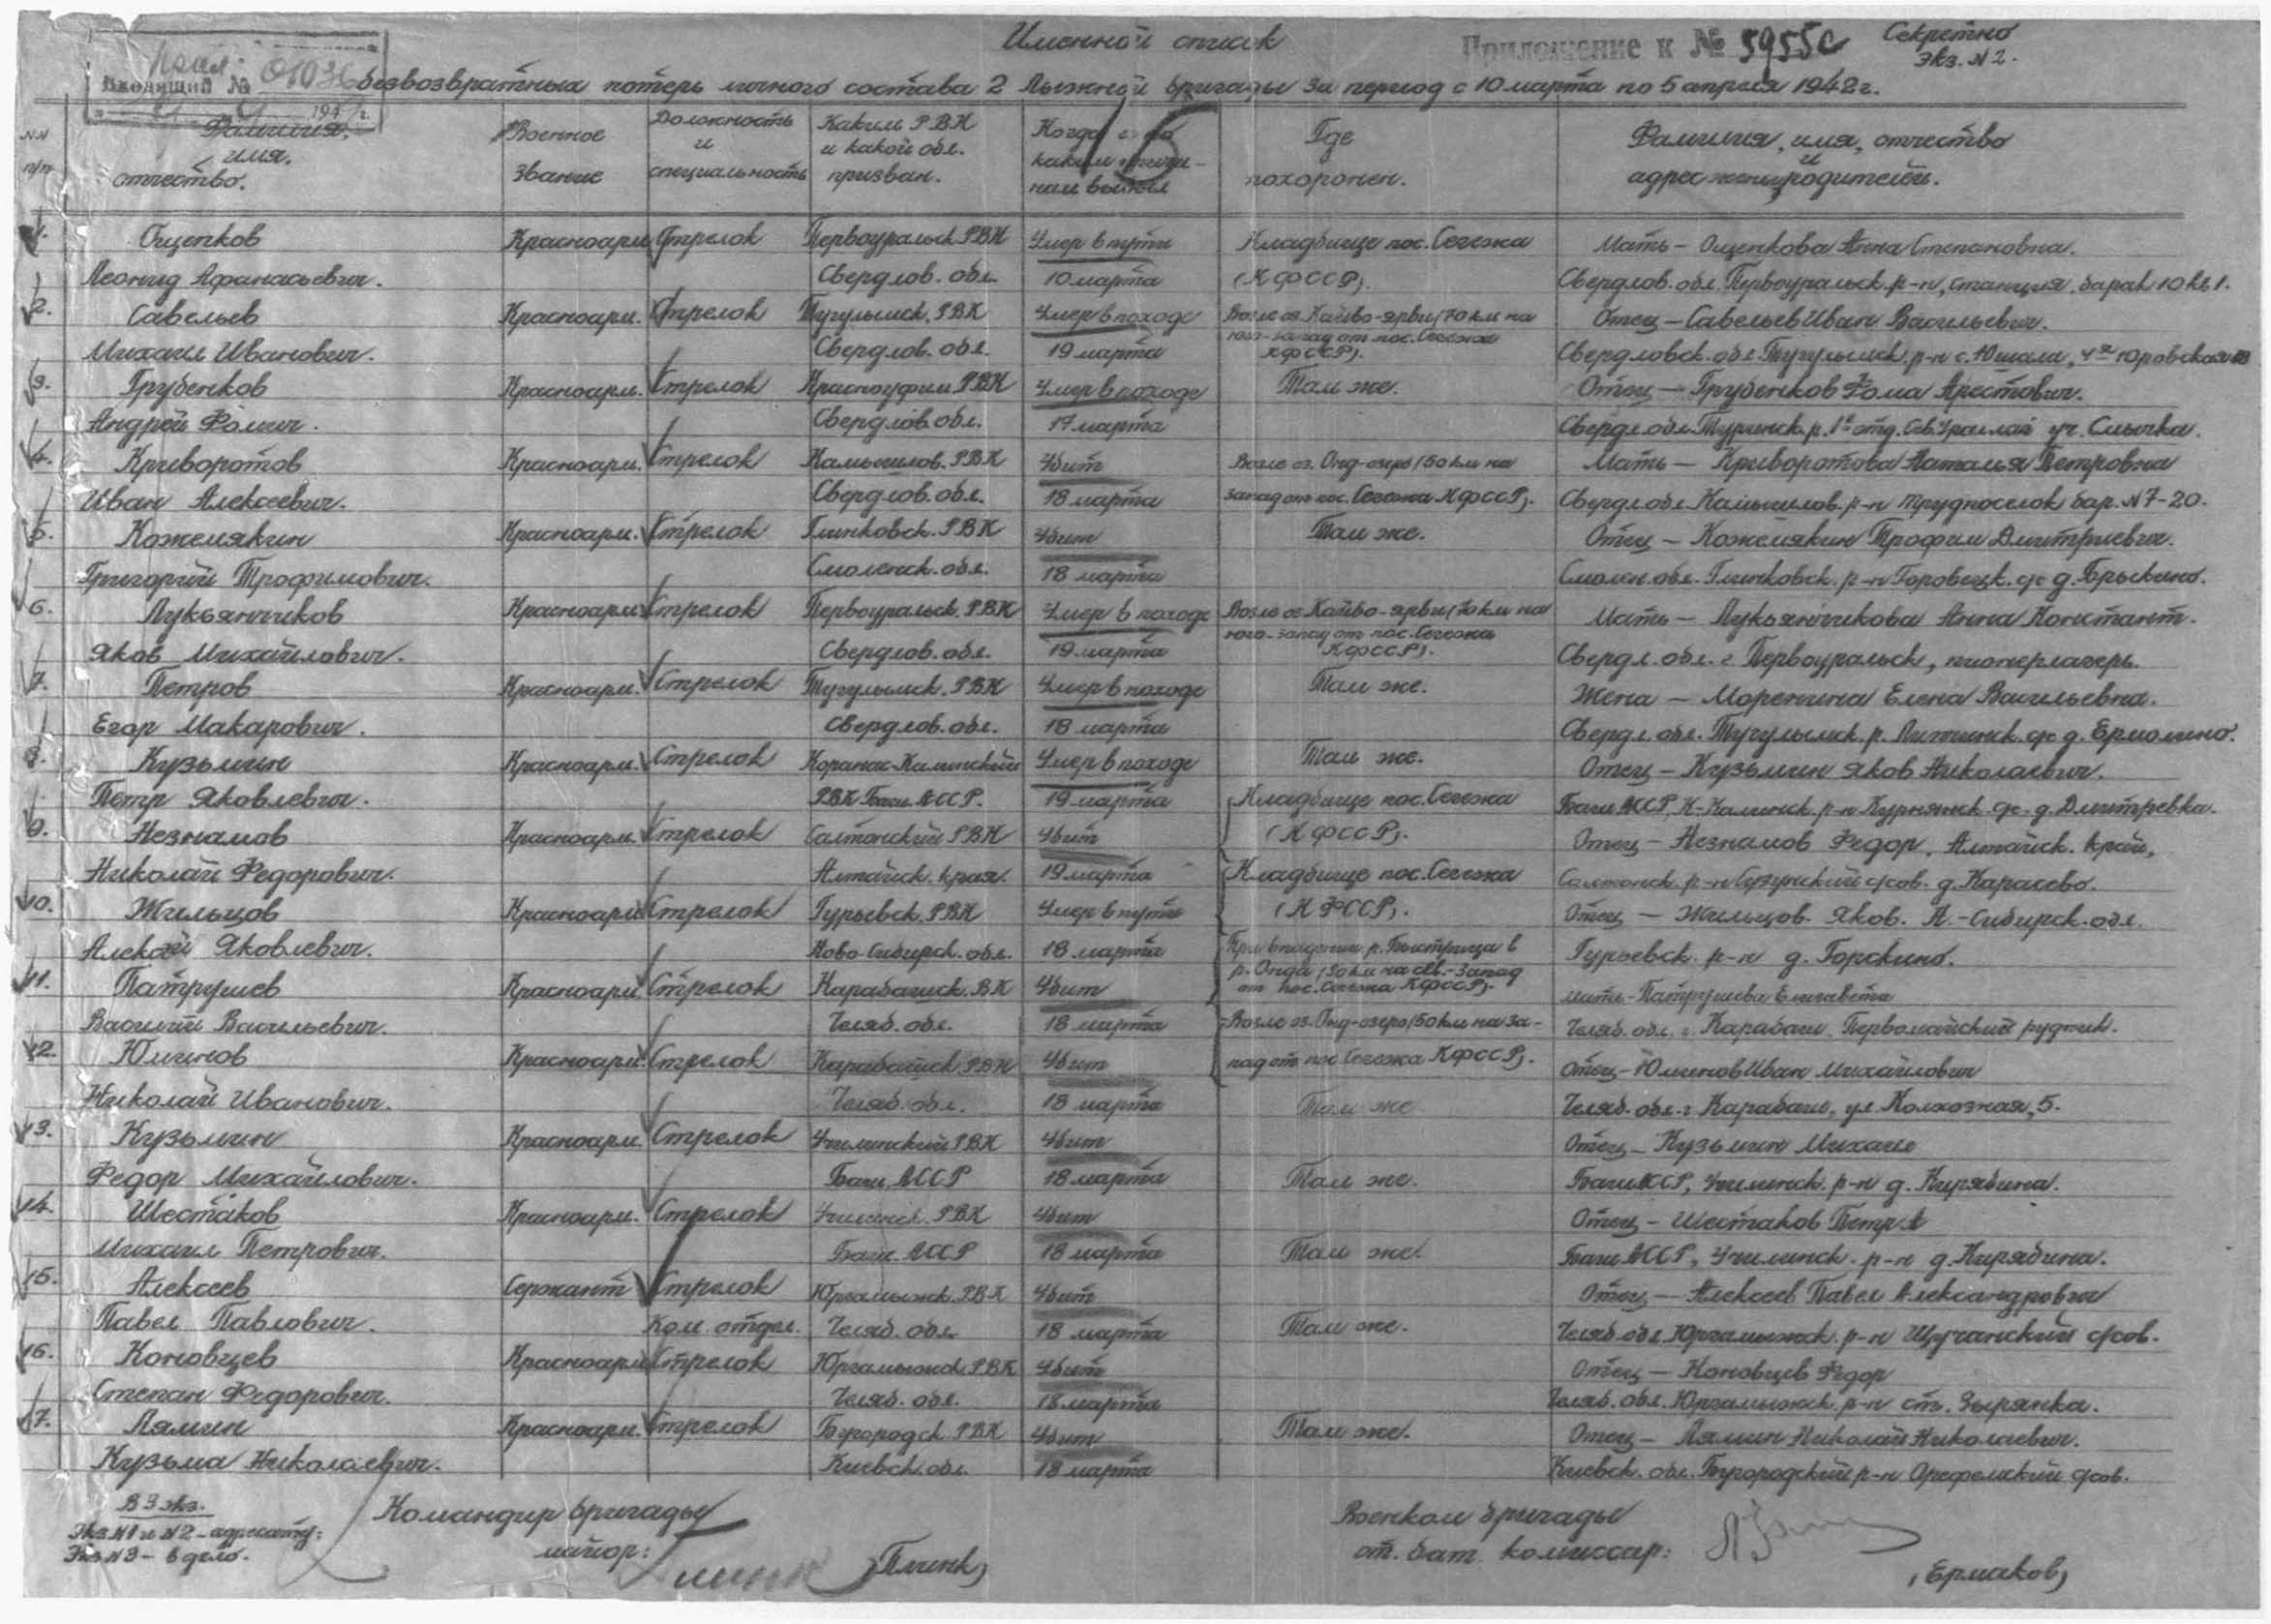 Именной список
Приложение к № 5955с
Секретно
Экз. N 2.
Входящий №
безвозвратных потерь личного состава 2 Лыжной бригады за период с 10 марта по 5 апреля 1942 г.
NN п/п
Фамилия, имя, отчество.
Военное звание
Должность и специальность
Каким РВК и какой обл. призван.
Когда и по каким причинам выбыл
Где похоронен.
Фамилия, имя, отчество и адрес жены, родителей.
1. Ощепков Красноарм. Стрелок Первоуральск. РВК Умер в пути Кладбище пос. Сегежа Мать – Ощепкова Анна Степановна.
Леонид Афанасьевич. Свердлов. обл. 10 марта (КФССР). Свердлов. обл. Первоуральск. р-н, станция, барак 10 кв 1.
2. Савельев Красноарм. Стрелок Тугулымск. РВК Умер в походе Возле оз. Кайво-ярви (70 км на Отец – Савельев Иван Васильевич.
юго-запад от пос. Сегежа
Михаил Иванович. Свердлов. обл. 19 марта КФССР). Свердловск. обл. Тугулымск. р-н с. Юшала,
3. Грубенков Красноарм. Стрелок Красноуфим. РВК Умер в походе Там же. Отец – Грубенков Фома
Андрей Фомич. Свердлов. обл. 17 марта Свердл. обл. Туринск. р.
4. Криворотов Красноарм. Стрелок Камышлов. РВК Убит Возле оз. Онд-озеро (50 км на Мать – Криворотова Наталья Петровна
Иван Алексеевич. Свердлов. обл. 18 марта запад от пос. Сегежа КФССР). Свердл. обл. Камышлов. р-н Трудпоселок бар. N 7-20.
5. Кожемякин Красноарм. Стрелок Глинковск. РВК Убит Там же. Отец – Кожемякин Трофим Дмитриевич.
Григорий Трофимович. Смоленск. обл. 18 марта Смолен. обл. Глинковск. р-н
6. Лукьянчиков Красноарм. Стрелок Первоуральск. РВК Умер в походе Возле оз Кайво-ярви (70 км на Мать – Лукьянчикова Анна Констант.
юго-запад от пос. Сегежа
Яков Михайлович. Свердлов. обл. 19 марта КФССР). Свердл. обл. г. Первоуральск, пионерлагерь.
7. Петров Красноарм. Стрелок Тугулымск. РВК Умер в походе Там же. Жена – Моренина Елена Васильевна.
Егор Макарович. Свердлов. обл. 18 марта Свердл. обл. Тугулымск. р. с/с д. Ермолино.
8. Кузьмин Красноарм. Стрелок Умер в походе Там же. Отец – Кузьмин Яков Николаевич.
Петр Яковлевич. РВК Баш. АССР. 19 марта Кладбище пос. Сегежа Баш АССР, д. Дмитревка.
9. Незнамов Красноарм. Стрелок Салтонский РВК Убит (КФССР). Отец – Незнамов Федор, Алтайск. край,
Николай Федорович. Алтайск. края. 19 марта Кладбище пос. Сегежа д. Карасево.
10. Жильцов Красноарм. Стрелок Гурьевск. РВК Умер в пути (КФССР). Отец – Жильцов. Яков. Н.-Сибирск. обл.
Алексей Яковлевич. Ново-Сибирск. обл. 18 марта При впадении р. Быстрица в Гурьевск. р-н д. Горскино.
р. Онда (30 км на сев.-запад
11. Патрушев Красноарм. Стрелок Карабашск. ВК Убит от пос. Сегежа КФССР). мать – Патрушева Елизавета
Василий Васильевич. Челяб. обл. 18 марта Возле оз. Онд-озеро (50 км на за- Челяб. обл. г. Карабаш. Первомайский рудник.
12. Юминов Красноарм. Стрелок Карабашск. РВК Убит пад от пос. Сегежа КФССР). Отец – Юминов Иван Михайлович
Николай Иванович. Челяб. обл. 18 марта Там же Челяб. обл. г. Карабаш, ул. Колхозная, 5.
13. Кузьмин Красноарм. Стрелок Учалинский РВК Убит Отец – Кузьмин Михаил
Федор Михайлович. Баш. АССР 18 марта Там же. Баш АССР, Учалинск. р-н д. Кирябина.
14. Шестаков Красноарм. Стрелок Учалинск. РВК Убит Отец – Шестаков Петр
Михаил Петрович. Баш. АССР 18 марта Там же. Баш АССР, Учалинск. р-н д. Кирябина.
15. Алексеев Сержант Стрелок Юргамышск. РВК Убит Отец – Алексеев Павел Александрович
Павел Павлович. Ком. отдел. Челяб. обл. 18 марта Там же. Челяб. обл. Юргамышск. р-н с/сов.
16. Коновцев Красноарм. Стрелок Юргамышск. РВК Убит Отец – Коновцев Федор
Степан Федорович. Челяб. обл. 18 марта Челяб. обл. Юргамышск. р-н ст. Зырянка.
17. Лямин Красноарм. Стрелок РВК Убит Там же. Отец – Лямин Николай Николаевич.
Кузьма Николаевич. Киевск. обл. 18 марта Киевск. обл. р-н с/сов.
В 3 экз.
Экз N1 и N2 – адресату:
Экз N3 – в дело.
Командир бригады
майор: (Глинк)
Военком бригады
ст. бат. комиссар: (Ермаков)